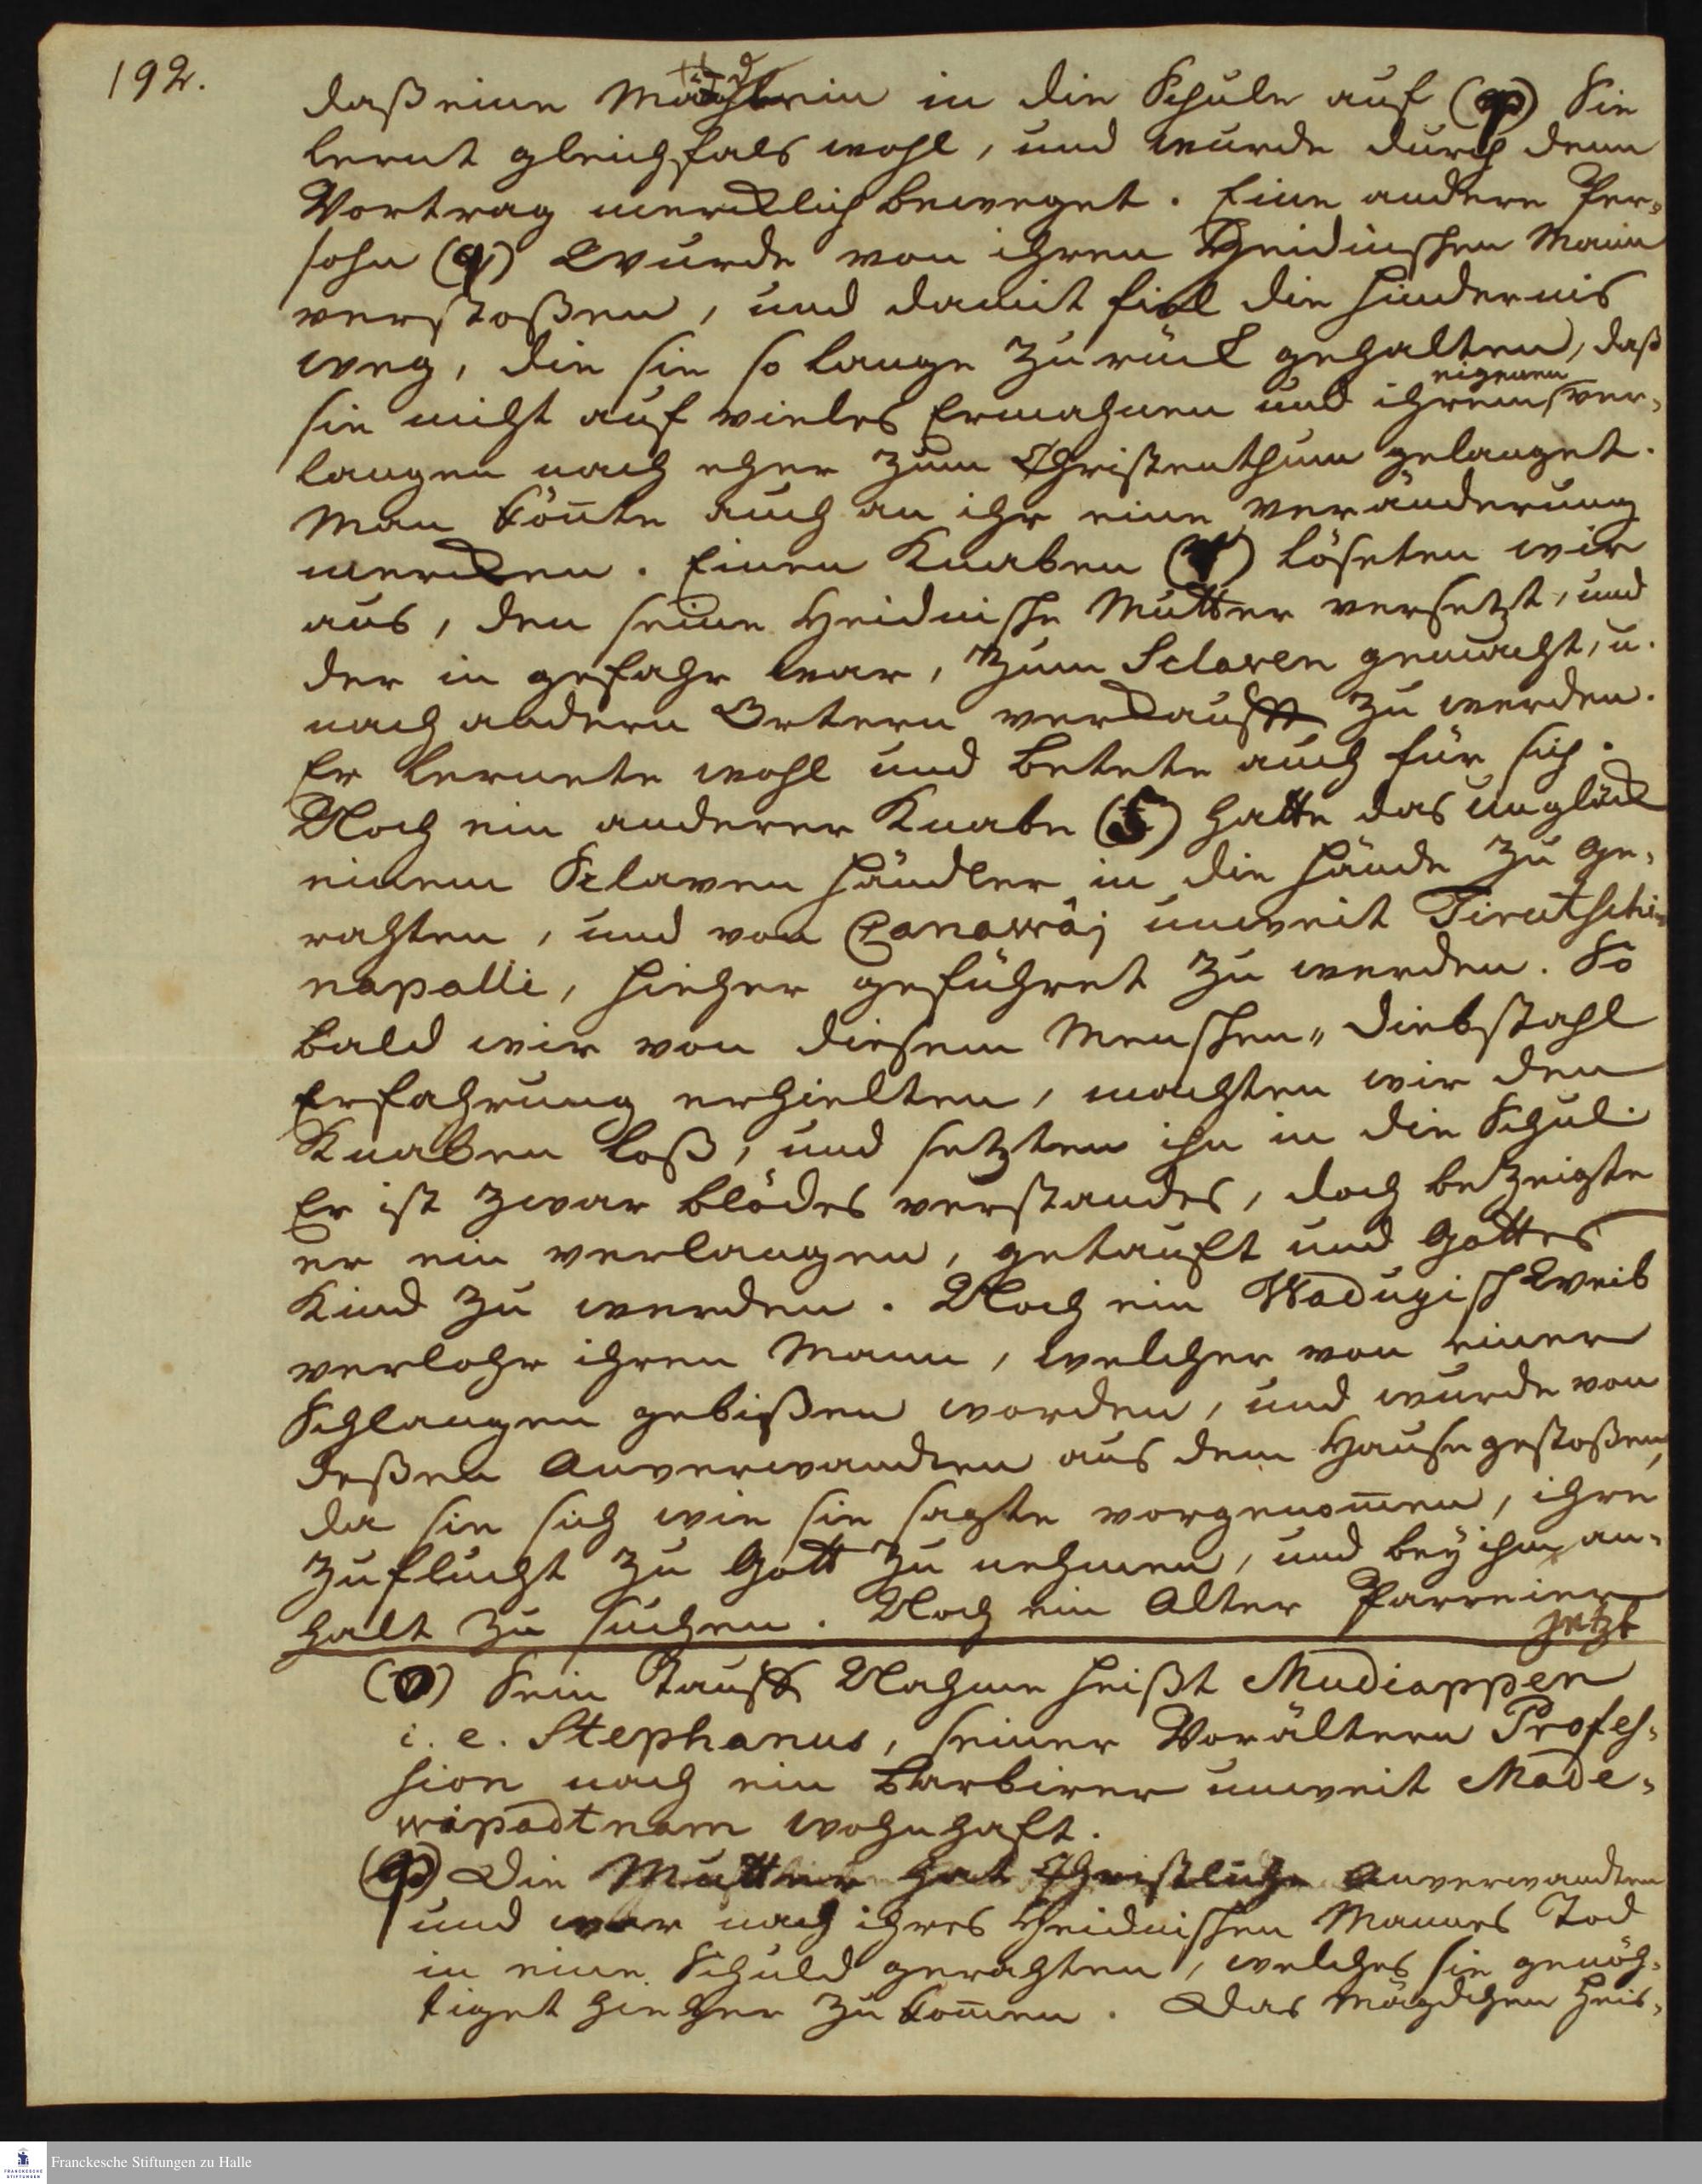 192.
daß eine Mägdlein in die Schule auf (p) Sie
lernt gleichfals wohl, und wurde durch denn
Vortrag mercklich beweget. Eine andere Per-
sohn (q) Wurde von ihren Heidnischen Mann
verstoßen, und damit fiel die Hindernis
weg, die sie so lange zurück gehalten, daß
eigenen
sie nicht auf vieles Ermahnen und ihrem ver-
langen nach eher zum Christenthum gelanget.
Man kōnte auch an ihr eine veränderung
mercken. Einen Knaben (r) löseten wir
aus, den seine Heidnische Mutter versetzt, und
der in gefahr war, zum Sclaven gemacht, u.
nach andern Ortern verkaufft zu werden.
Er lernete wohl und betete auch für sich.
Noch ein anderer Knabe (s) hatte das unglück
einem Sclaven händler in die Hände zu ge-
rahten, und von Canawāj unweit Tirutschi-
napalli, hieher geführet zu werden. So
bald wir von diesem Menschen-diebstahl
Erfahrung erhielten, machten wir den
Knaben loß, und setzten ihn in die Schul.
Er ist zwar blödes verstandes, doch bezeigte
er ein verlangen, getauft und Gottes
Kind zu werden. Noch ein Wadugisch Weib
verlohr ihren Mann, welcher von einer
Schlangen gebißen worden, und wurde von
deßen Anverwandten aus dem Hause gestoßen,
da sie sich wie sie sagte vorgenom̄en, ihre
Zuflucht zu Gott zu nehmen, und bey ihm an-
halt zu suchen. Noch ein Alter Parreier
jetzt
(o) Sein Tauff Nahme heißt Mudiappen
i. e. Stephanus, seiner Vorältern Profes-
sion nach ein Barbirer unweit Made-
wipadtnam wohnhaft.
(p) Die Mutter hat Christliche Anverwandten
und war nach ihres Heidnischen Mannes Tod
in eine Schuld gerahten, welches sie genöh-
tiget hieher zu kom̄en. Das Mägdchen heis-
Franckesche Stiftungen zu Halle